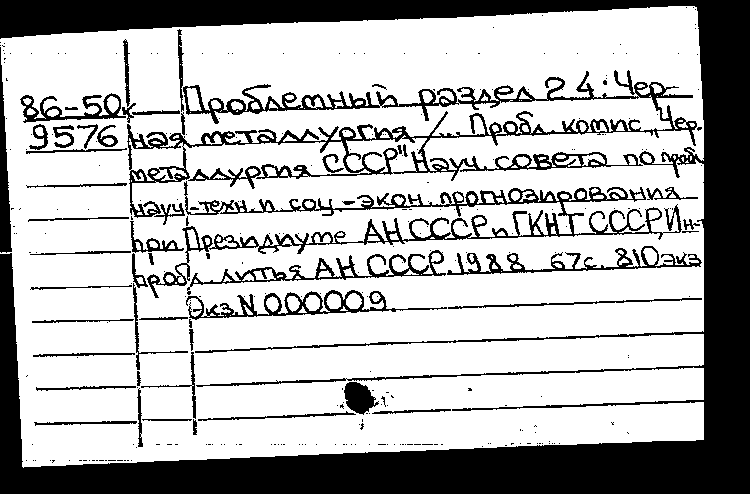 86-50к Проблемный раздел 2 4: Чер-
9576 ная металлургия / ... Пробл. комис. „Чер.
металлургия СССР" Науч. совета по пробл
науч.-техн. и соц.-экон. прогнозирования
при Президиуме АН СССР и ГКНТ СССР, Ин-т
пробл. литья АН СССР. 1988 67с. 810экз
Экз. N 000009.